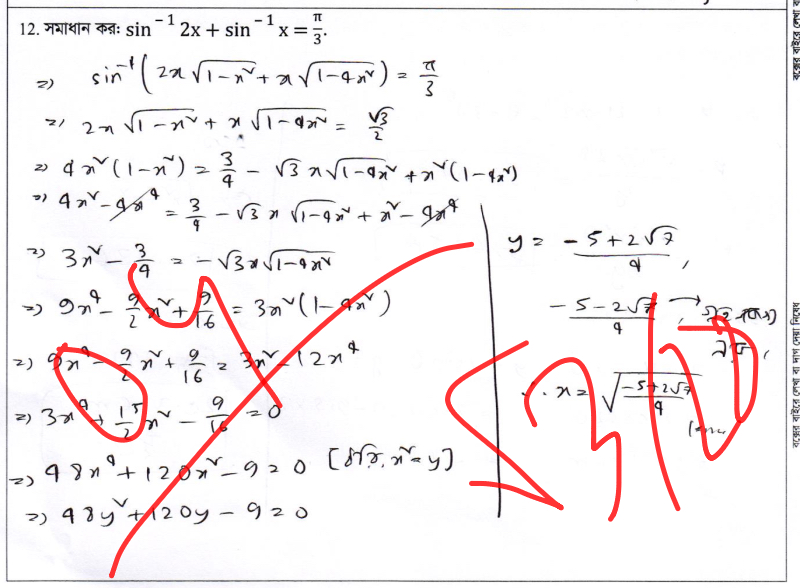 12. সমাধান কর: sin⁻¹ 2x + sin⁻¹ x = π/3.
=> sin⁻¹(2x√(1-x²) + x√(1-4x²)) = π/3
=> 2x√(1-x²) + x√(1-4x²) = √3/2
=> 4x²(1-x²) = 3/4 - √3 x√(1-4x²) + x²(1-4x²)
=> 4x² - 4x⁴ = 3/4 - √3 x√(1-4x²) + x² - 4x⁴
=> 3x² - 3/4 = -√3 x√(1-4x²)
=> 9x⁴ - 9/2 x² + 9/16 = 3x²(1-4x²)
=> 9x⁴ - 9/2 x² + 9/16 = 3x² - 12x⁴
=> 3x⁴ + 15/2 x² - 9/16 = 0
=> 48x⁴ + 120x² - 9 = 0 [ধরি, x² = y]
=> 48y² + 120y - 9 = 0
y = (-5+2√7)/4,
(-5-2√7)/4, →
∴ x = √((-5+2√7)/4)
বক্সের বাইরে লেখা বা দাগ দেয়া নিষেধ